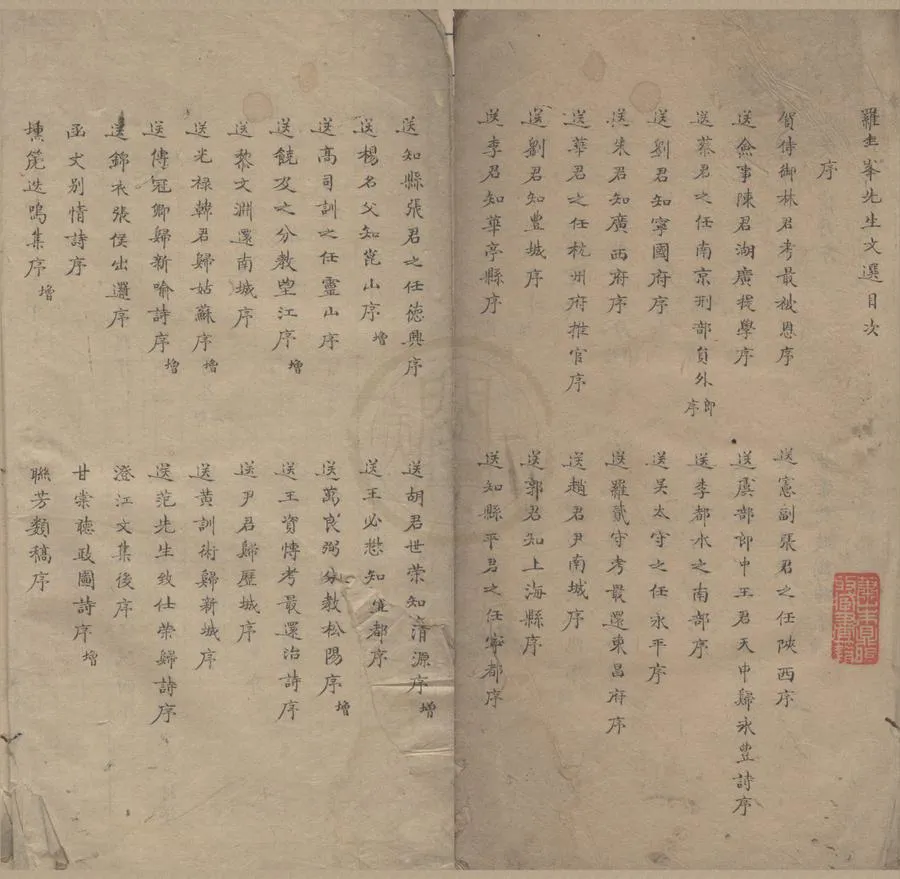 羅圭峯先生文選目次
序
賀侍御林君考最秋恩序
送憲副張君之任陝西序
送僉事陳君湖廣提學序
送虞部郎中王君天中歸永豊詩序
送蔡君之任南京刑部貟外郎序
送李都水之南部序
送劉君知寧國府序
送吴太守之任永平序
送朱君知廣西府序
送羅貳守考最還東昌府序
送華君之任杭州府推官序
送趙君尹南城序
送劉君知豊城序
送郭君知上海縣序
送李君知華亭縣序
送知縣平君之任寧都序
送知縣張君之任德興序
送胡君世荣知清源序增
送楊名父知崑山序增
送王必愁知都序
送高司訓之任靈山序
送萬良弼分教松陽序增
送饒及之分教望江序增
送王資慱考最還治詩序
送黎文淵還南城序
送尹君歸歷城序
送光禄韓君歸姑蘇序增
送黄訓術歸新城序
送傅冠卿歸新喻詩序增
送范先生致仕荣歸詩序
送錦衣張侯出邏序
澄江文集後序
函丈別情詩序
甘棠聽政圖詩序增
壎箎迭鳴集序增
聯芳類稿序